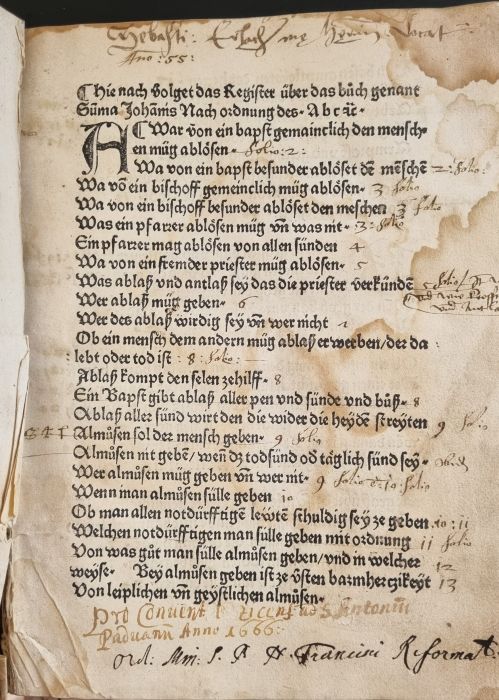 Sebasti: Erhach me Vocat
Ano :55:
Hie nach volget das Register über das bůch genant
Sũma Johãnis Nach ordnung des · A b c ꝛc̃·
A War von ein bapst gemainclich den mensch-
en müg ablösen · Folio: 2:
Wa von ein bapst besunder ablöset dẽ mẽschẽ 2: folio:
Wa võ ein bischoff gemeinclich müg ablösen · 3 folio
Wa von ein bischoff besunder ablöset den meschen 3 folio
Was ein pfarrer ablösen müg vñ was nit · 3: folio
Ein pfarrer mag ablösen von allen sünden 4
Wa von ein fremder priester müg ablösen · 5
Was ablaß vnd antlaß sey das die priester verkünden 5 folio
Wer ablaß müg geben · 6
Wer des ablaß wirdig sey vñ wer nicht
Ob ein mensch dem andern müg ablaß erwerben / der da
lebt oder tod ist : 8 : folio:
Ablaß kompt den selen zehilff · 8
Ein Bapst gibt ablaß aller pen vnd sünde vnd bůß · 8
Ablaß aller sünd wirt den die wider die heydẽ streyten 9 folio
Almůsen sol der mensch geben · 9 folio
Almůsen nit gebẽ / weñ dz todsünd od täglich sünd sey ·
Wer almůsen müg geben vñ wer nit · 9 folio & 10 folio
Wenn man almůsen sülle geben 10
Ob man allen notdürfftigẽ lewtẽ schuldig sey ze geben · 10 : 11
Welchen notdürfftigen man sülle geben mit ordnung 11 folio
Von was gůt man sülle almůsen geben / vnd in welcher 12
weyse · Bey almůsen geben ist ze ꝟsten barmherczikeyt 13
Von leiplichen vñ geystlichen almůsen ·
Pro Convent ad S. Antoniũ
Paduanũ Anno 1666:
Ord: Min: S. P. N. Francisci Reformat: